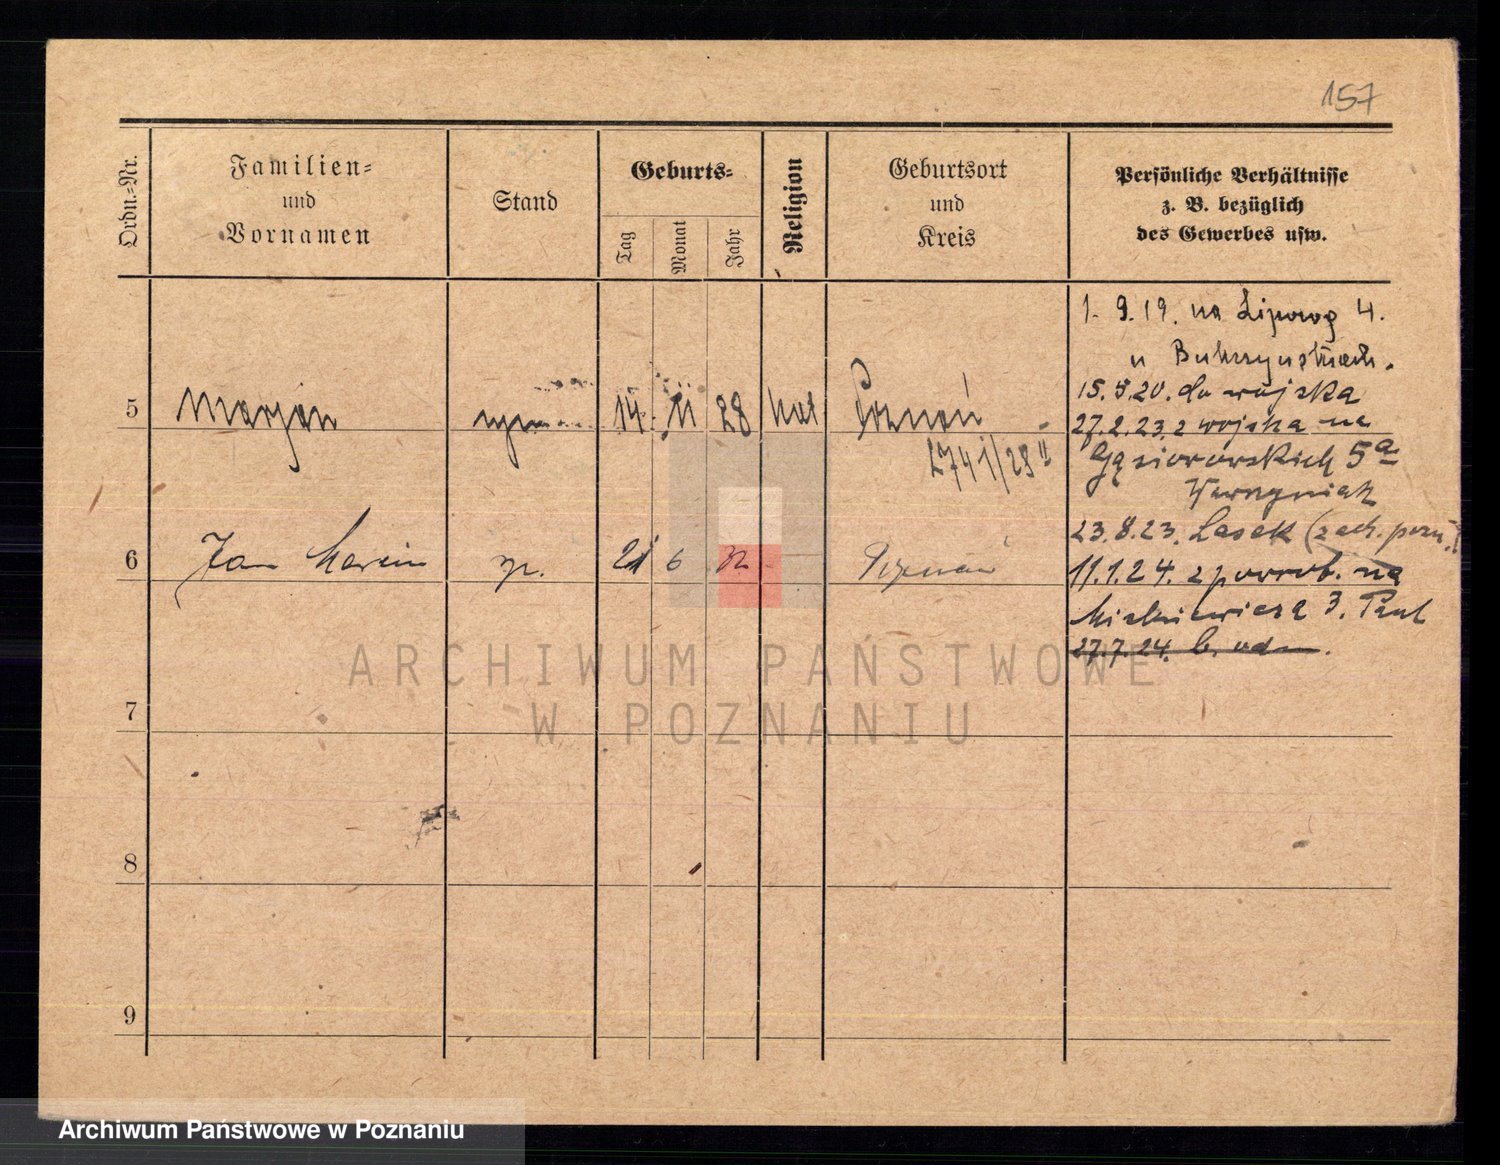 157
Ordn.-Nr.
Familien-
und
Vornamen
Stand
Geburts-
Tag
Monat
Jahr
Religion
Geburtsort
und
Kreis
Persönliche Verhältnisse
z. B. bezüglich
des Gewerbes usw.
1. 9.19. na 4.
u
15.5.20. do wojska
5 Marjan syn 14. 11 28 kat Poznań
27.2.23. z wojska na
Gąsiorowskich 5a
6 Jan Marcin 6 32 Poznań
23.8.23. Lasek (zach. pozn.)
11.1.24. z powrot. na
Mickiewicza 3.
27.7.24.
7
8
9
ARCHIWUM PAŃSTWOWE
W POZNANIU
Archiwum Państwowe w Poznaniu